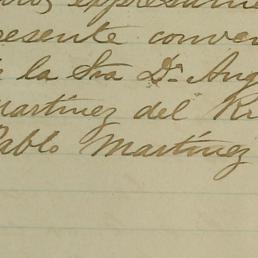 expresame
presente conven
la Sra Da Ang
Martínez del Ri
Pablo Martínez